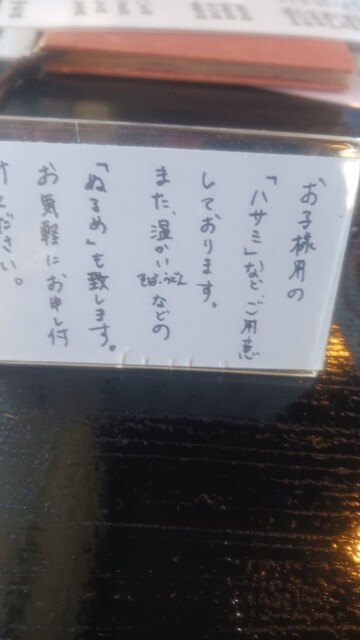 お子様用の
「ハサミ」などご用意
しております。
また、温かいそば、うどんなどの
「ぬるめ」も致します。
お気軽にお申し付
けください。